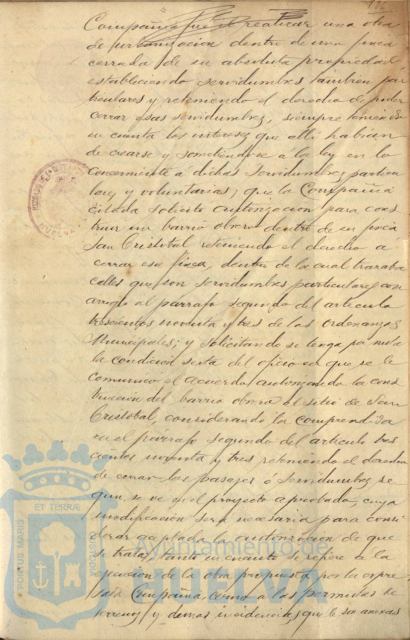 Compañia fué el realizar una obra
de urbanizacion dentro de una finca
cerrada de su absoluta propiedad
estableciendo servidumbres tambien par
ticulares y reteniendo el derecho de poder
cerrar esas servidumbres, siempre teniendo
en cuenta los intereses que alli habian
de crearse y sometiendose a la ley en lo
concerniente a dichas servidumbres particu
lares y voluntarias; que la Compañia
citada solicitó autorizacion para cons
truir un barrio obrero dentro de su finca
San Cristobal reteniendo el derecho a
cerrar esa finca, dentro de la cual trazaba
calles que son servidumbres particulares con
arreglo al parrafo segundo del articulo
trescientos noventa y tres de las ordenanzas
Municipales; y solicitando se tenga por nula
la condición sexta del oficio en que se le
comunicó el acuerdo autorizando la cons
trucción del barrio obrero al sitio de San
Cristobal, considerandola comprendida
en el parrafo segundo del articulo tres
cientos noventa y tres reteniendo el derecho
de cerrar los pasajes ó servidumbres se
gun se ve en el proyecto aprobado, cuya
modificación será necesaria para consi
derar aceptada la autorizacion de que
se trata, tanto en cuanto se refiere a la
ejecucion de la obra propuesta por la expre
sada Compañia como a las permutas de
terrenos y demas incidencias que le son anexas
PORTUS MARIS
ET TERRAE
CUSTODIA
Ayuntamiento de
HUELVA